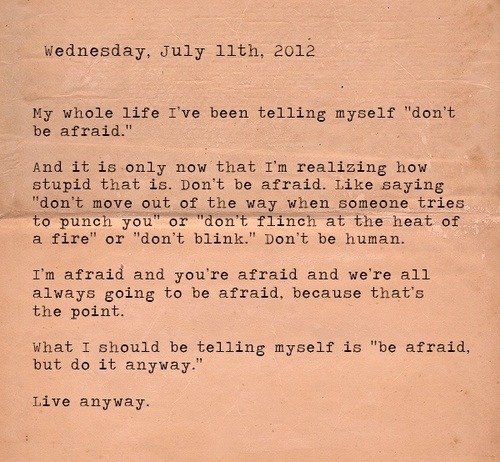 Wednesday, July 11th, 2012
My whole life I've been telling myself "don't
be afraid."
And it is only now that I'm realizing how
stupid that is. Don't be afraid. Like saying
"don't move out of the way when someone tries
to punch you" or "don't flinch at the heat of
a fire" or "don't blink." Don't be human.
I'm afraid and you're afraid and we're all
always going to be afraid, because that's
the point.
What I should be telling myself is "be afraid,
but do it anyway."
Live anyway.